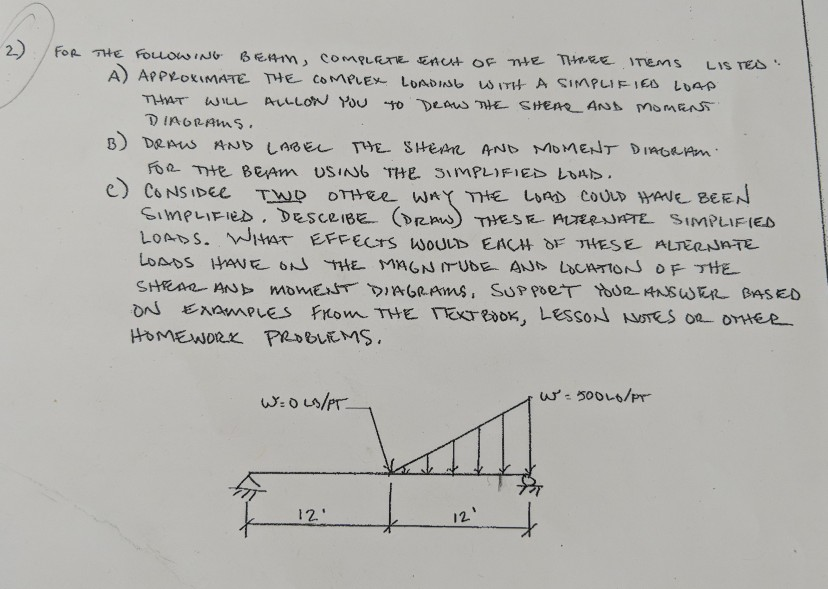 2) FOR THE FOLLOWING BEAM, COMPLETE EACH OF THE THREE ITEMS LISTED:
A) APPROXIMATE THE COMPLEX LOADING WITH A SIMPLIFIED LOAD
THAT WILL ALLLOW YOU TO DRAW THE SHEAR AND MOMENT
DIAGRAMS.
B) DRAW AND LABEL THE SHEAR AND MOMENT DIAGRAM
FOR THE BEAM USING THE SIMPLIFIED LOAD.
C) CONSIDER TWO OTHER WAY THE LOAD COULD HAVE BEEN
SIMPLIFIED. DESCRIBE (DRAW) THESE ALTERNATE SIMPLIFIED
LOADS. WHAT EFFECTS WOULD EACH OF THESE ALTERNATE
LOADS HAVE ON THE MAGNITUDE AND LOCATION OF THE
SHEAR AND MOMENT DIAGRAMS, SUPPORT YOUR ANSWER BASED
ON EXAMPLES FROM THE TEXTBOOK, LESSON NOTES OR OTHER
HOMEWORK PROBLEMS.
W=0 LB/FT
W=500LB/FT
12'
12'